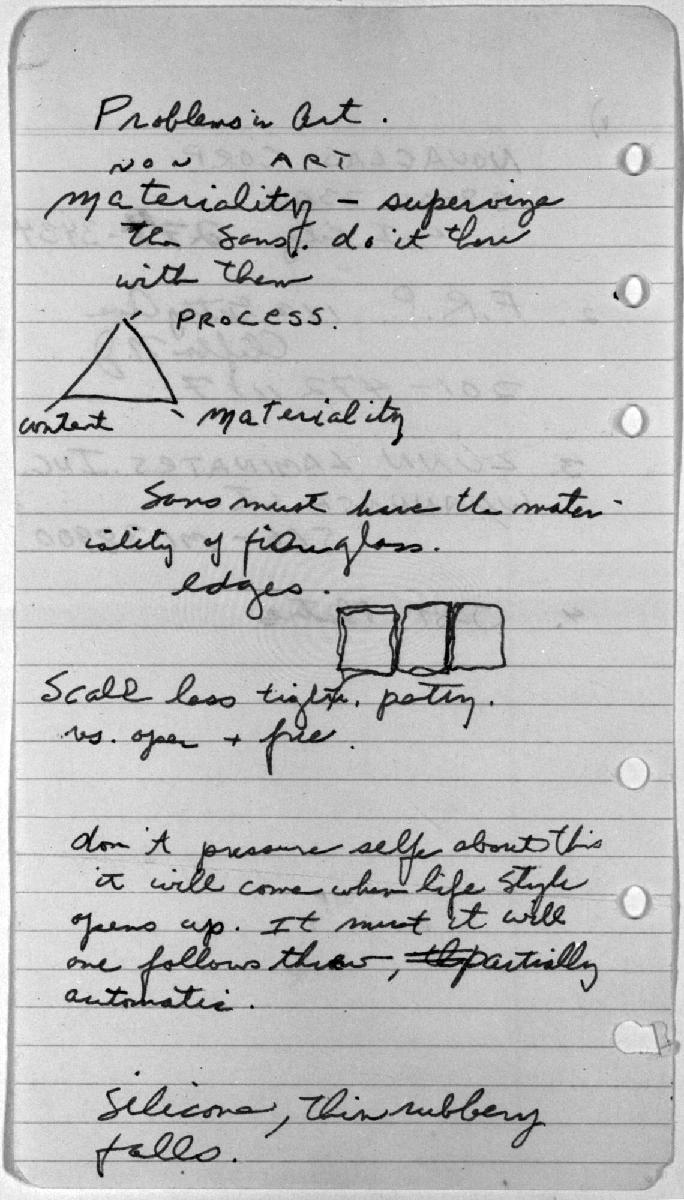 Problems in Art.
NON ART
materiality – supervize
the Sans. do it there
with them
PROCESS.
content
materiality
Sans must have the mater-
iality of fiberglass.
edges.
Scale less tight,
vs. open + free.
don't pressure self about this
it will come when life style
opens up. It must it will
one follows thru, partially
automatic.
Silicone, thin rubbery
falls.